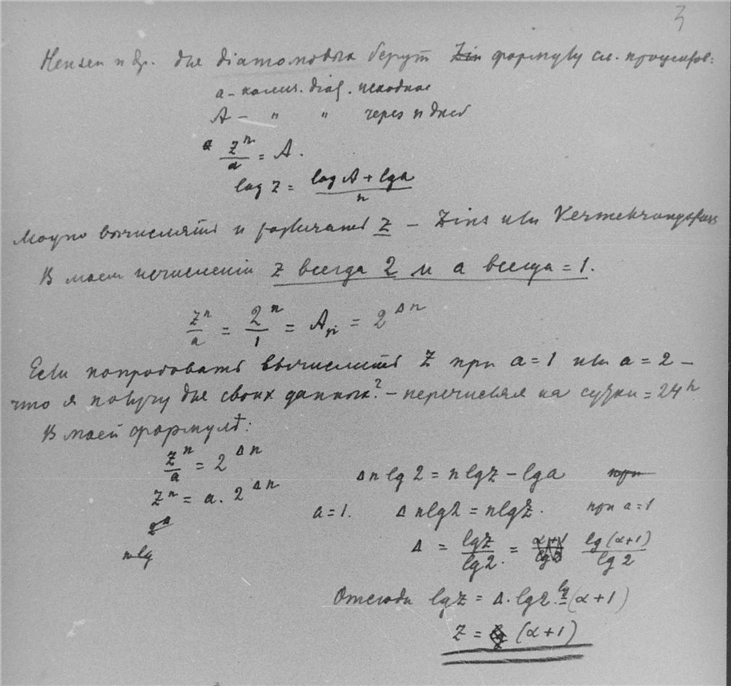 3
Hensen и др. для diатомовых берут формулу сл. процентов:
a – колич. diat. исходное
A – " " через n дней
a z^n/a = A.
log z = log A + lg a / n
Можно вычислять и различать z – Zins или Vermehrungsfuss
В моем исчислении z всегда 2 и a всегда = 1.
z^n/a = 2^n/1 = A_n = 2^Δn
Если попробовать вычислить z при a=1 или a=2 –
что я получу для своих данных? – перечисляя на сутки = 24^h
В моей формуле:
z^n/a = 2^Δn
z^n = a. 2^Δn
n lg
Δn lg 2 = n lg z – lg a
a=1. Δn lg 2 = n lg z. при a=1
Δ = lg z / lg 2 = lg(α+1) / lg 2
Отсюда lg z = Δ. lg 2 = lg (α+1)
z = (α+1)